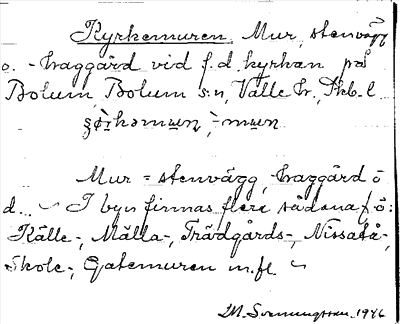 Kyrkemuren Mur, stenvägg
o. -haggård vid f.d. kyrkan på
Bolum, Bolum s:n, Valle hr, Skb. l.
-mun
Mur = stenvägg, -haggård ö
d... ~ I byn finnas flere sådana f ö:
Källe-, Mälla-, Trädgårds-, Nissatå-,
Skole-, Gatemuren m.fl. ~
1946